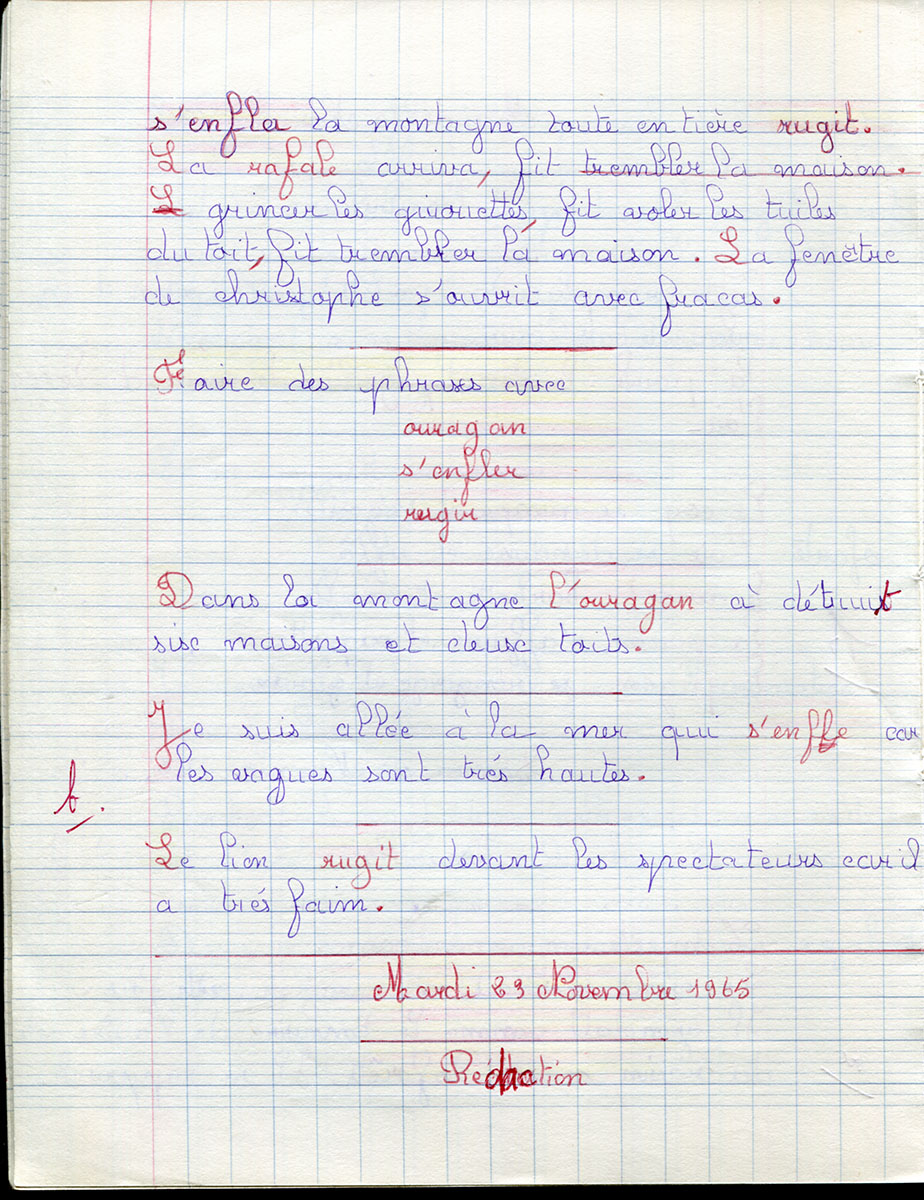 s'enfla la montagne toute entière rugit.
La rafale arriva, fit trembler la maison.
L grincer les girouettes, fit voler les tuiles
du toit, fit trembler la maison. La fenêtre
de christophe s'ouvrit avec fracas.
Faire des phrases avec
ouragan
s'enfler
rugir
Dans la montagne l'ouragan à détruit
six maisons et deux toits.
Je suis allée à la mer qui s'enfle car
les vagues sont trés hautes.
b.
Le lion rugit devant les spectateurs car il
a trés faim.
Mardi 23 Novembre 1965
Rédaction